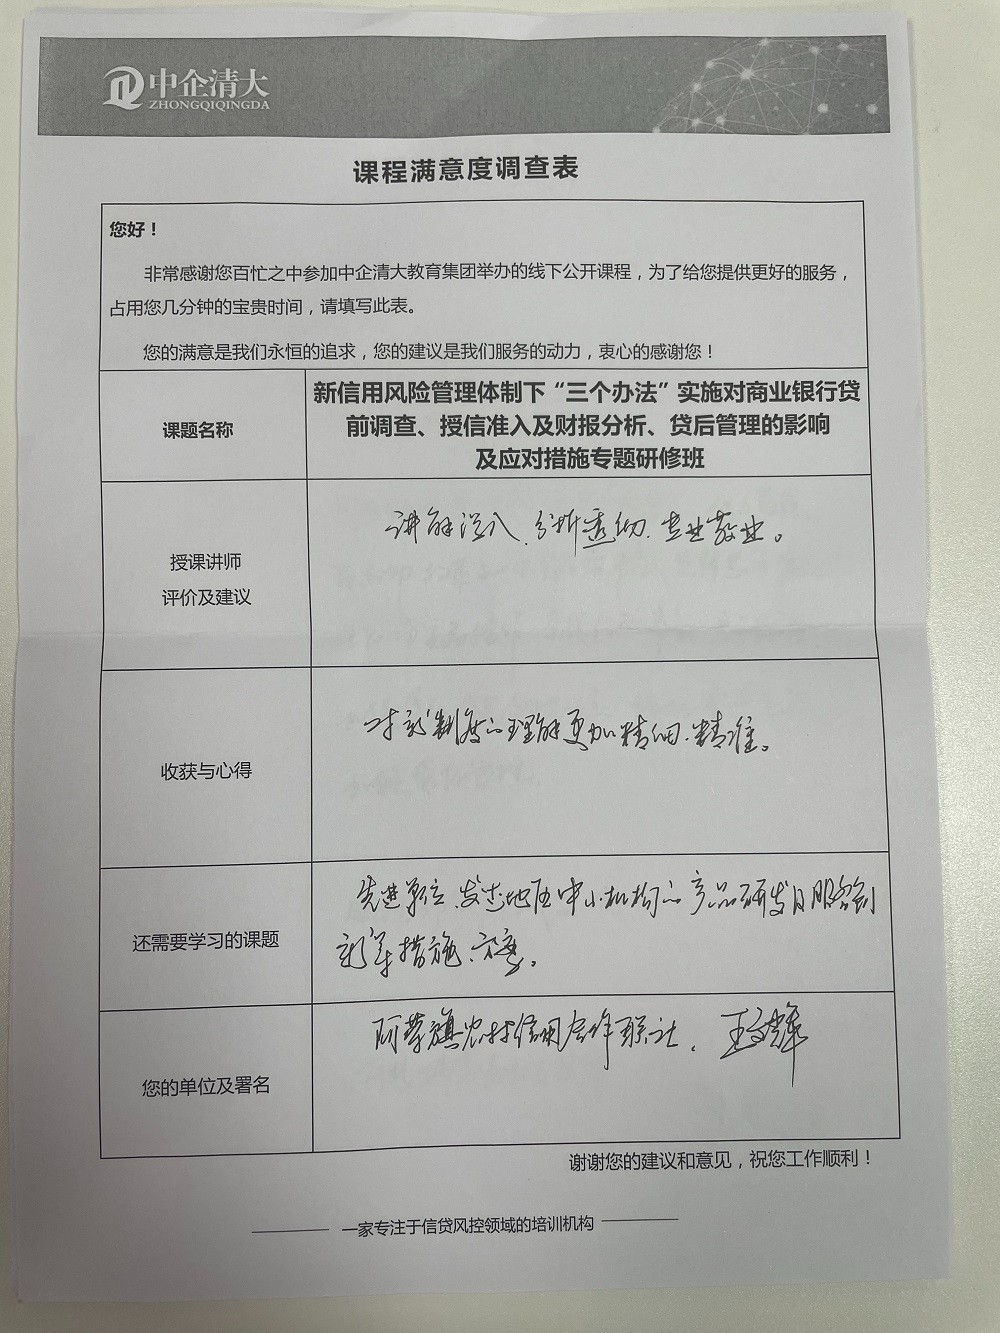 中企清大
ZHONGQIQINGDA
课程满意度调查表
您好！
非常感谢您百忙之中参加中企清大教育集团举办的线下公开课程，为了给您提供更好的服务，
占用您几分钟的宝贵时间，请填写此表。
您的满意是我们永恒的追求，您的建议是我们服务的动力，衷心的感谢您！
课题名称
新信用风险管理体制下“三个办法”实施对商业银行贷
前调查、授信准入及财报分析、贷后管理的影响
及应对措施专题研修班
授课讲师
评价及建议
讲解深入、分析透彻、专业敬业。
收获与心得
对新制度的理解更加精细、精准。
还需要学习的课题
先进单位、发达地区中小机构的产品研发及服务创
新等措施、方案。
您的单位及署名
阿荣旗农村信用合作联社，王文辉
谢谢您的建议和意见，祝您工作顺利！
一家专注于信贷风控领域的培训机构